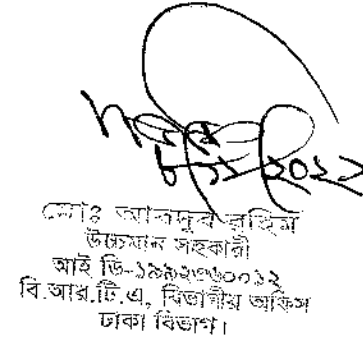 মোঃ আবদুর রহিম
উচ্চমান সহকারী
আই ডি-১৯৯২৩৬০০১২
বি.আর.টি.এ, বিভাগীয় অফিস
ঢাকা বিভাগ।